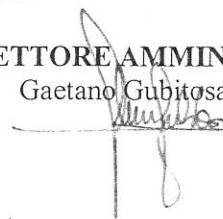 ETTORE AMMIN
Gaetano Gubitosa